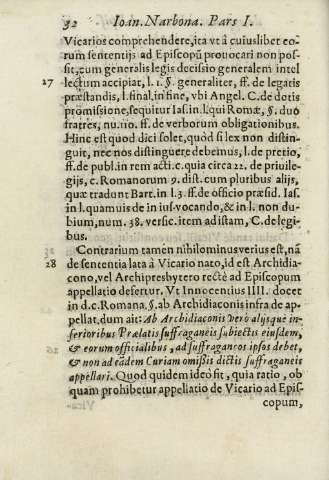 32 Ioan. Narbona. Pars I.
Vicarios comprehendere, ita vt à cuiuslibet eo-
rum sententijs ad Episcopũ prouocari non pos-
sit, cum generalis legis decissio generalem intel
27 lectum accipiat, l. 1. §. generaliter, ff. de legatis
præstandis, l. final. in fine, vbi Angel. C. de dotis
promissione, sequitur Ias. in l. qui Romæ, §. duo
fratres, nu. 110. ff. de verborum obligationibus.
Hinc est quod dici solet, quod si lex non distin-
guit, nec nos distinguere debemus, l. de pretio,
ff. de publ. in rem acti. c. quia circa 22. de priuile-
gijs, c. Romanorum 9. dist. cum pluribus alijs,
quæ tradunt Bart. in l. 3. ff. de officio præsid. Ias.
in l. quamuis de in ius-vocando, & in l. non du-
bium, num. 38. versic. item ad istam, C. de legi-
bus.
Contrarium tamen nihilominus verius est, nã
28 de sententia lata à Vicario nato, id est Archidia-
cono, vel Archipresbytero rectè ad Episcopum
appellatio defertur. Vt Innocentius IIII. docet
in d. c. Romana. §. ab Archidiaconis infra de ap-
pellat, dum ait: Ab Archidiaconis verò alysque in-
ferioribus Prælatis suffraganeis subiectis eiusdem,
& eorum officialibus, ad suffraganeos ipsos debet,
& non ad eadem Curiam omissis dictis suffraganeis
appellari. Quod quidem ideò sit, quia ratio, ob
quam prohibetur appellatio de Vicario ad Epis-
copum,